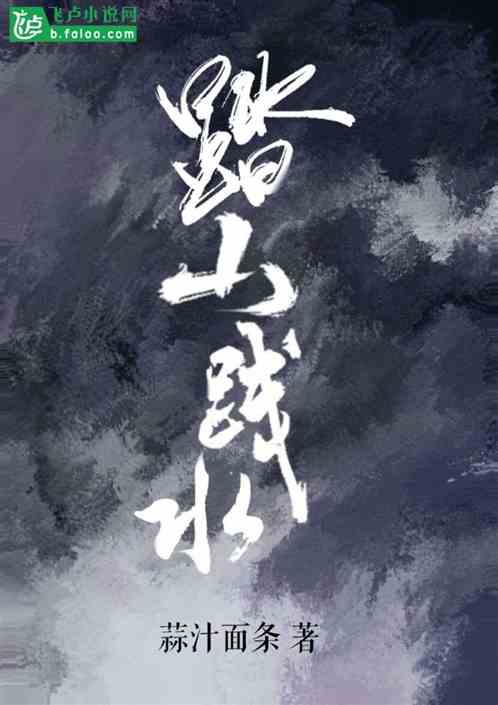 飞卢小说网
飞卢
b.faloo.com
踏
山
践
水
蒜汁面条 著